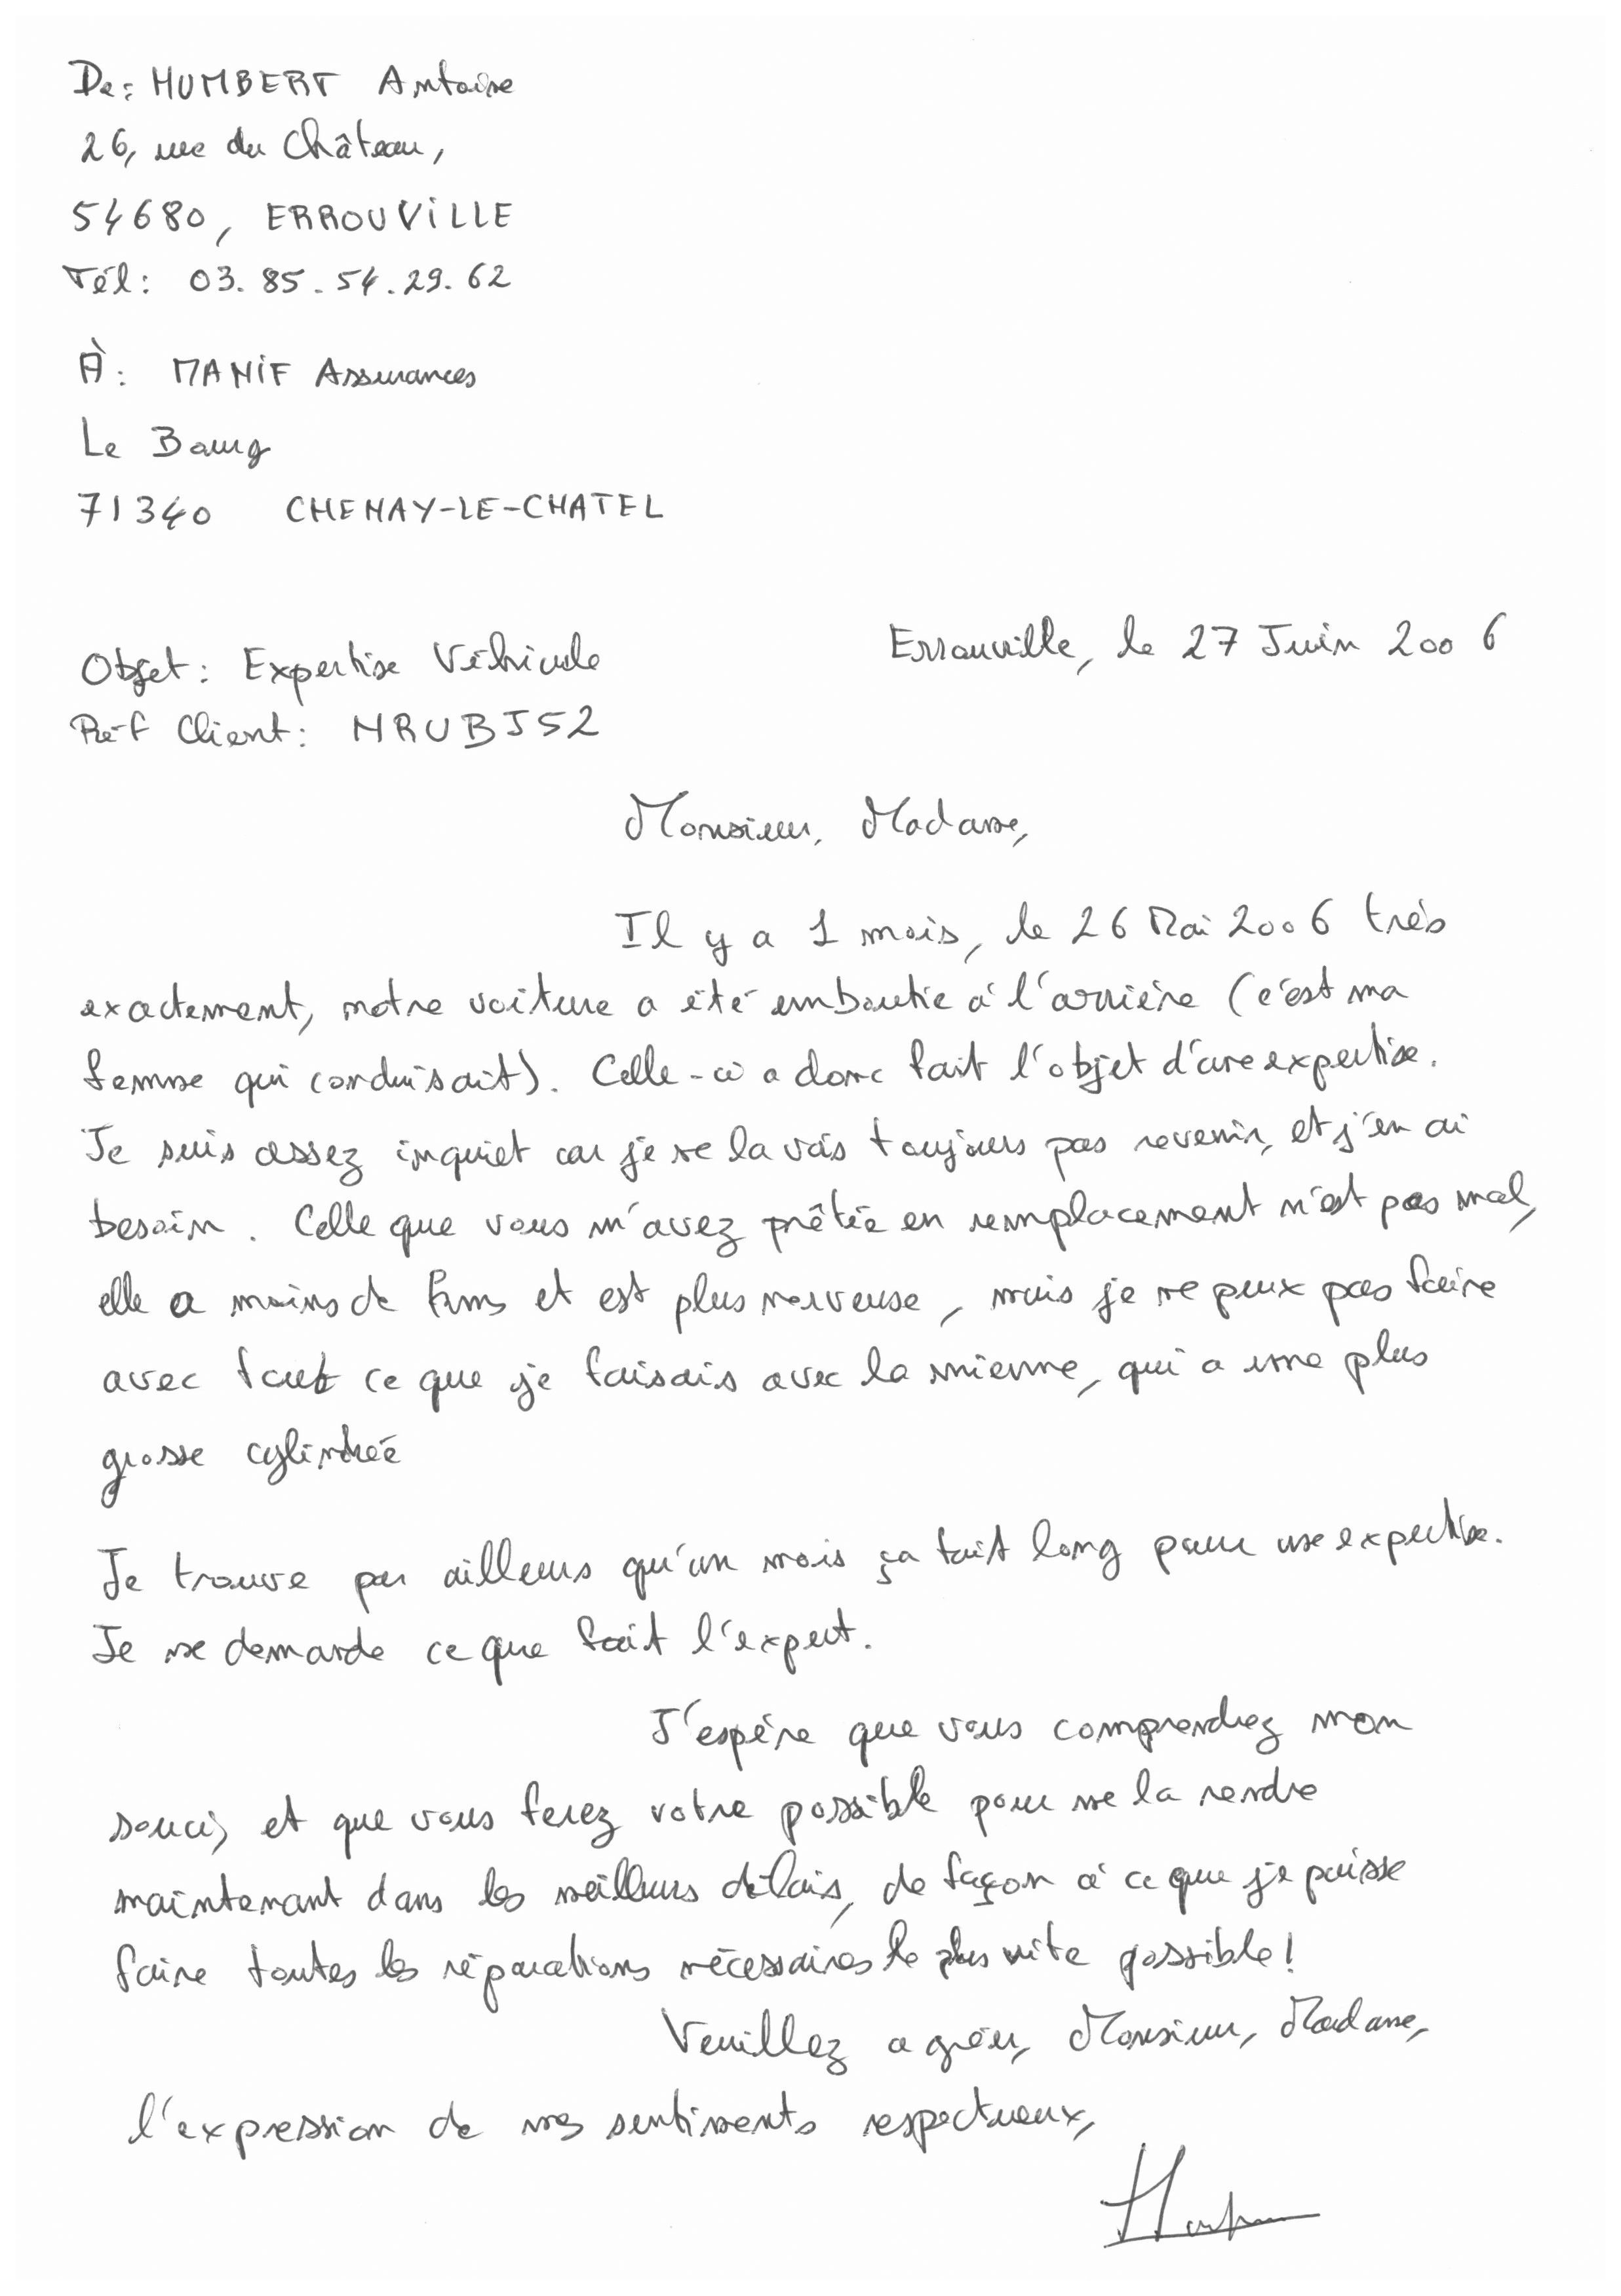 De: HUMBERT Antoine
26, rue du Château,
54680, ERROUVILLE
Tél: 03.85.54.29.62
À: MANIF Assurances
Le Bourg
71340 CHENAY-LE-CHATEL
Errouville, le 27 Juin 2006
Objet: Expertise Véhicule
Réf Client: NRUBJ52
Monsieur, Madame,
Il y a 1 mois, le 26 Mai 2006 très
exactement, notre voiture a été emboutie à l'arrière (c'est ma
femme qui conduisait). Celle-ci a donc fait l'objet d'une expertise.
Je suis assez inquiet car je ne la vois toujours pas revenir, et j'en ai
besoin. Celle que vous m'avez prêtée en remplacement n'est pas mal,
elle a moins de kms et est plus nerveuse, mais je ne peux pas faire
avec tout ce que je faisais avec la mienne, qui a une plus
grosse cylindrée
Je trouve par ailleurs qu'un mois ça fait long pour une expertise.
Je me demande ce que fait l'expert.
J'espère que vous comprendrez mon
souci, et que vous ferez votre possible pour me la rendre
maintenant dans les meilleurs délais, de façon à ce que je puisse
faire toutes les réparations nécessaires le plus vite possible!
Veuillez agréer, Monsieur, Madame,
l'expression de mes sentiments respectueux,